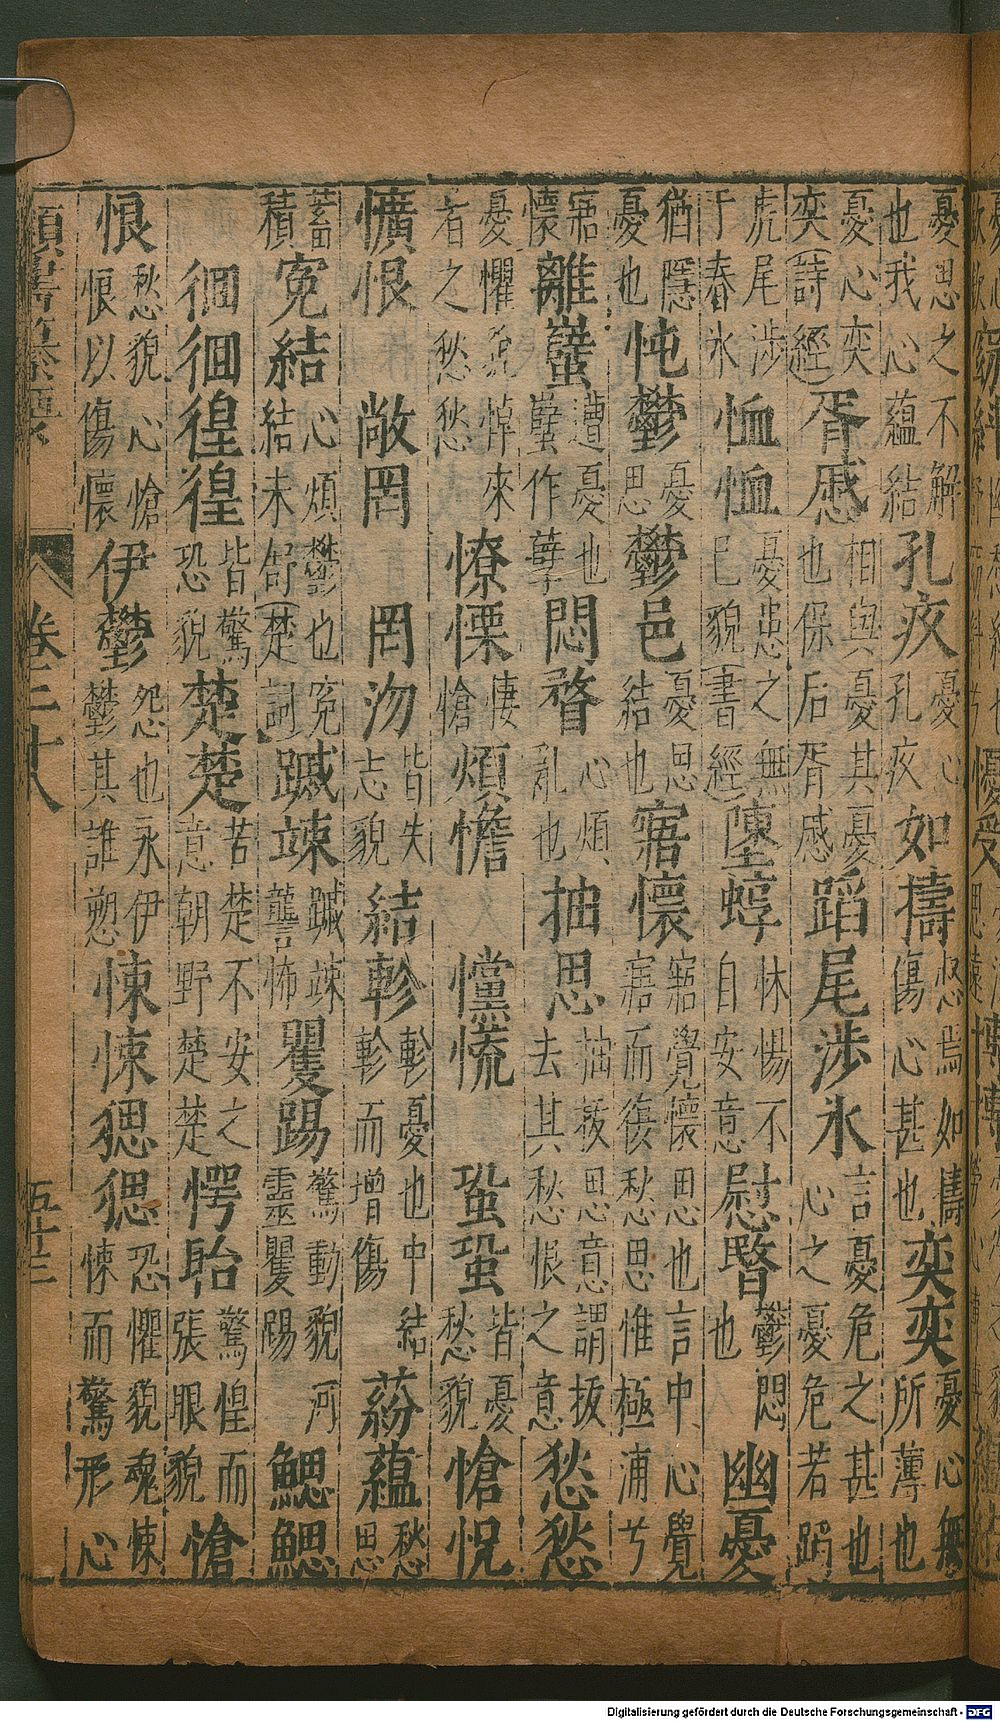 憂思之不解也我心蘊結孔疚憂心孔疚如擣惄焉如擣傷心甚也奕奕憂心無所薄也
憂心奕奕(詩經)胥慼相與憂其憂也保后胥慼蹈尾涉氷言憂危之甚也心之憂危若蹈
虎尾涉于春氷恤恤憂患之無已貌(書經)墬蜳怵惕不自安意慰暋鬱悶也幽憂
猶隱憂也忳鬱憂思鬱邑憂思結也寤懷寤覺懷思也言中心覺寤而復愁思惟極浦兮
寤懷離蠥遭憂也蠥作孽悶瞀心煩亂也抽思抽拔思意謂拔去其愁恨之意愁愁
憂懼貌悼來者之愁愁憭慄悽愴煩憺戃慌蛩蛩皆憂愁貌愴怳
懭悢敞罔罔沕皆失志貌結軫軫憂也中結軫而增傷紛蘊愁思
蓄積寃結心煩鬱也寃結未訇(楚詞)竦竦讋怖矍踢驚動貌河靈矍踢鰓鰓
徊徊徨徨皆驚恐貌楚楚苦楚不安之意朝野楚楚愕眙驚惶而張眼貌愴
悢愁貌心愴悢以傷懷伊鬱怨也永伊鬱其誰愬悚悚恐懼貌魂悚悚而驚形心
類書纂要 卷二十八 五十三
Digitalisierung gefördert durch die Deutsche Forschungsgemeinschaft - DFG